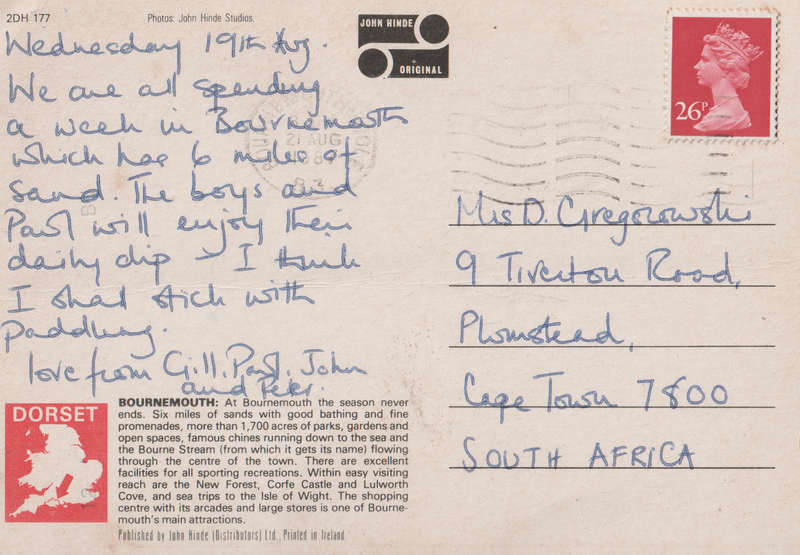 2DH 177
Photos: John Hinde Studios.
JOHN HINDE
ORIGINAL
Wednesday 19th Aug.
We are all spending
a week in Bournemouth
which has 6 miles of
sand. The boys and
Paul will enjoy their
daily dip – I think
I shall stick with
paddling.
love from Gill, Paul, John
and Peter.
21 AUG
26P
Mrs D. Gregorowski
9 Tiverton Road,
Plumstead,
Cape Town 7800
SOUTH AFRICA
DORSET
BOURNEMOUTH: At Bournemouth the season never
ends. Six miles of sands with good bathing and fine
promenades, more than 1,700 acres of parks, gardens and
open spaces, famous chines running down to the sea and
the Bourne Stream (from which it gets its name) flowing
through the centre of the town. There are excellent
facilities for all sporting recreations. Within easy visiting
reach are the New Forest, Corfe Castle and Lulworth
Cove, and sea trips to the Isle of Wight. The shopping
centre with its arcades and large stores is one of Bourne-
mouth's main attractions.
Published by John Hinde (Distributors) Ltd., Printed in Ireland